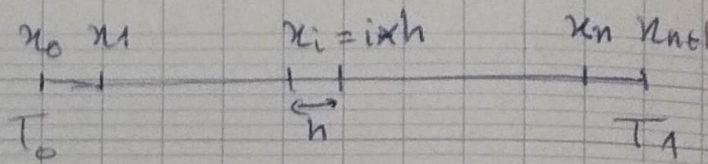 x₀ x₁ xᵢ = i×h xₙ xₙ₊₁
T₀ h T₁